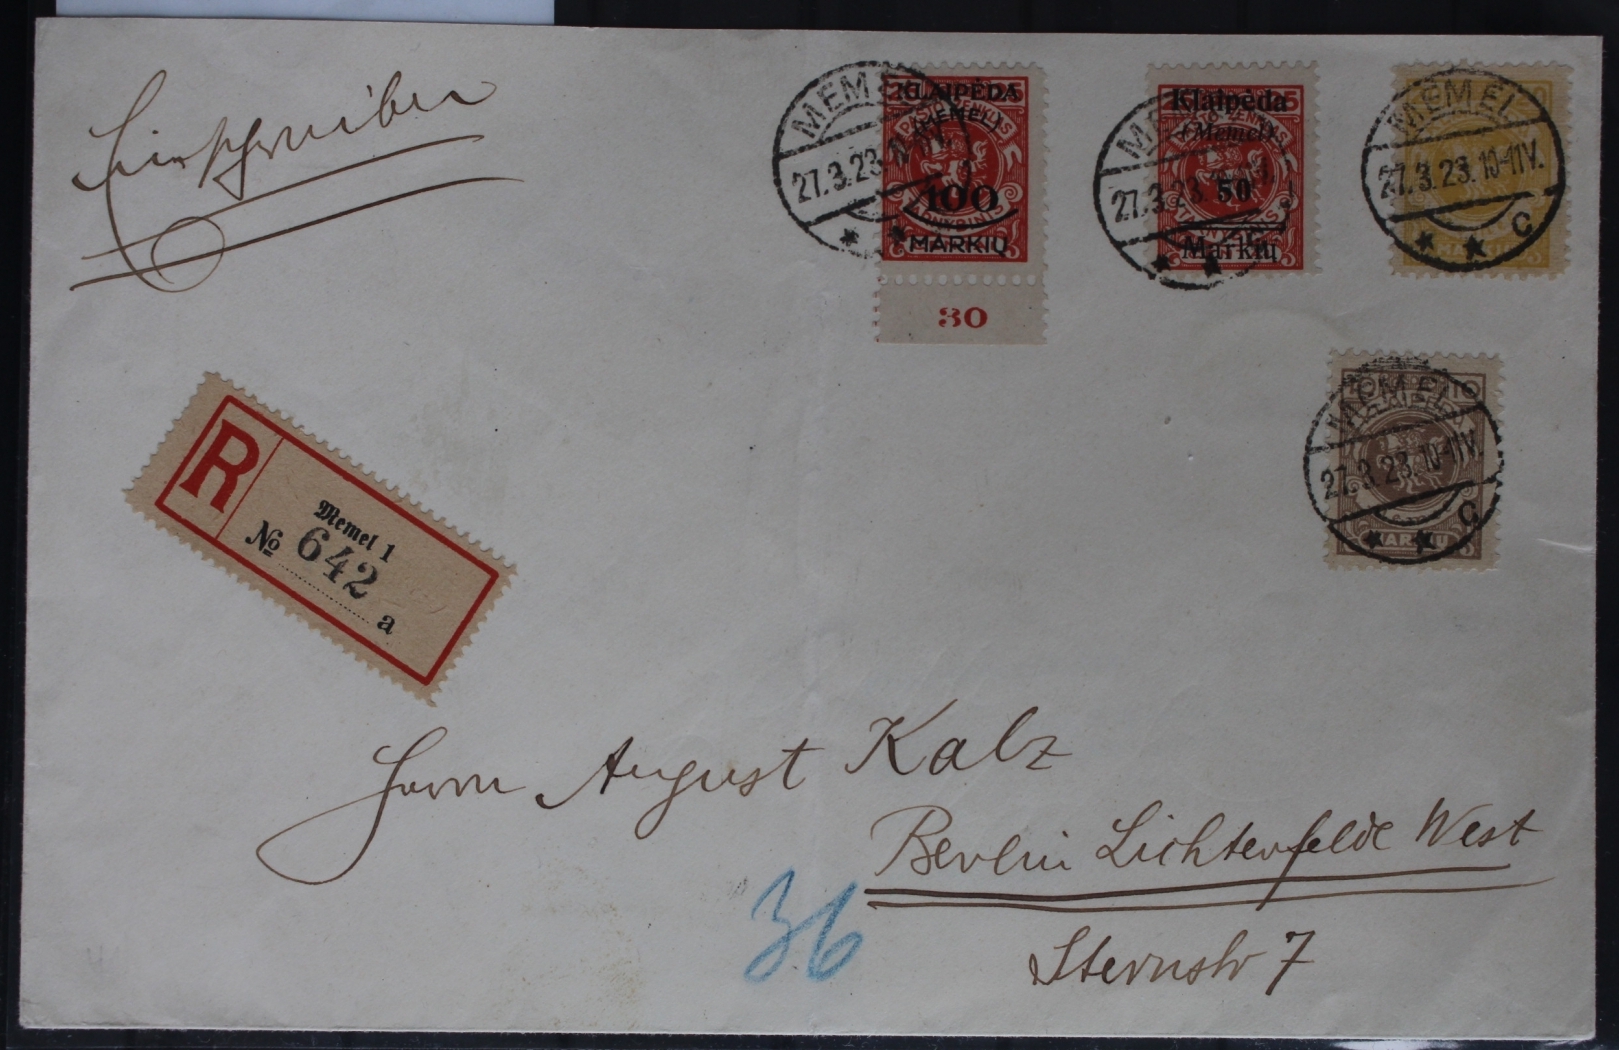 Einschreiben
MEMEL
27.3.23.10-11V.
KLAIPĖDA
(MEMEL)
100
MARKIŲ
30
MEMEL
27.3.23
Klaipėda
(Memel)
50
Markių
MEMEL
27.3.23.10-11V.
C
MEMEL
27.3.23.10-11V.
C
R
Memel 1
№ 642
a
Herrn August Kalz
Berlin Lichterfelde West
Sternstr 7
36